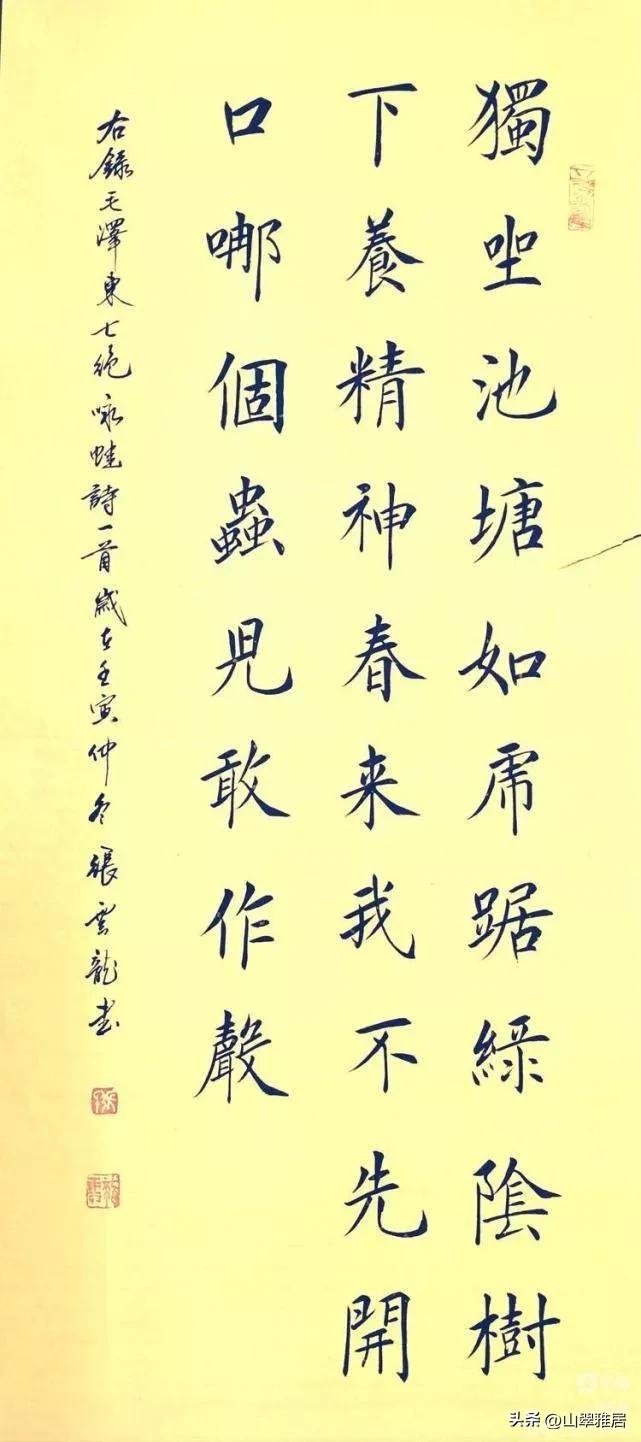 獨坐池塘如虎踞綠陰樹
下養精神春来我不先開
口哪個蟲児敢作聲
右錄毛澤東七絕咏蛙詩一首歲在壬寅仲冬張雲龍書
头条@山翠雅居